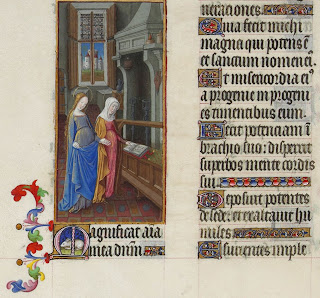 Magnificat aĩa
mea dñm
neraciones.
Quia fecit michi
magna qui potens ē
et sanctum nomē eiꝰ
Et misericordia eiꝰ
a progenie in progeni
es timentibus eum.
Fecit potenciam ī
brachio suo: dispersit
superbos mente cordis
sui
Deposuit potentes
de sede: et exaltauit hu
miles
Esurientes imple